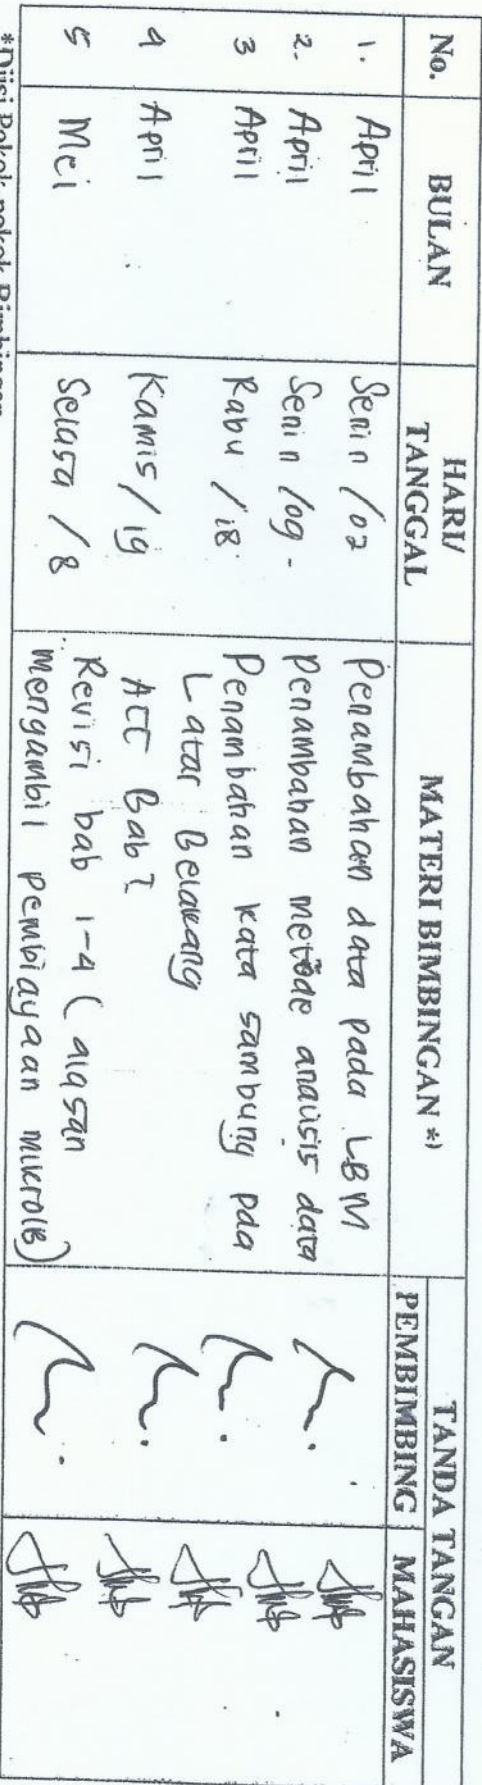 No. BULAN HARI/ TANGGAL MATERI BIMBINGAN *) TANDA TANGAN
PEMBIMBING MAHASISWA
1. April Senin /02 Penambahan data pada LBM
2. April Senin /09 - Penambahan metode analisis data
3 April Rabu /18 Penambahan kata sambung pda
Latar Belakang
4 April Kamis /19 Acc Bab I
5 Mei Selasa /8 Revisi bab 1-4 (alasan
mengambil pembiayaan mikroIB)
*Diisi Pokok-pokok Bimbingan